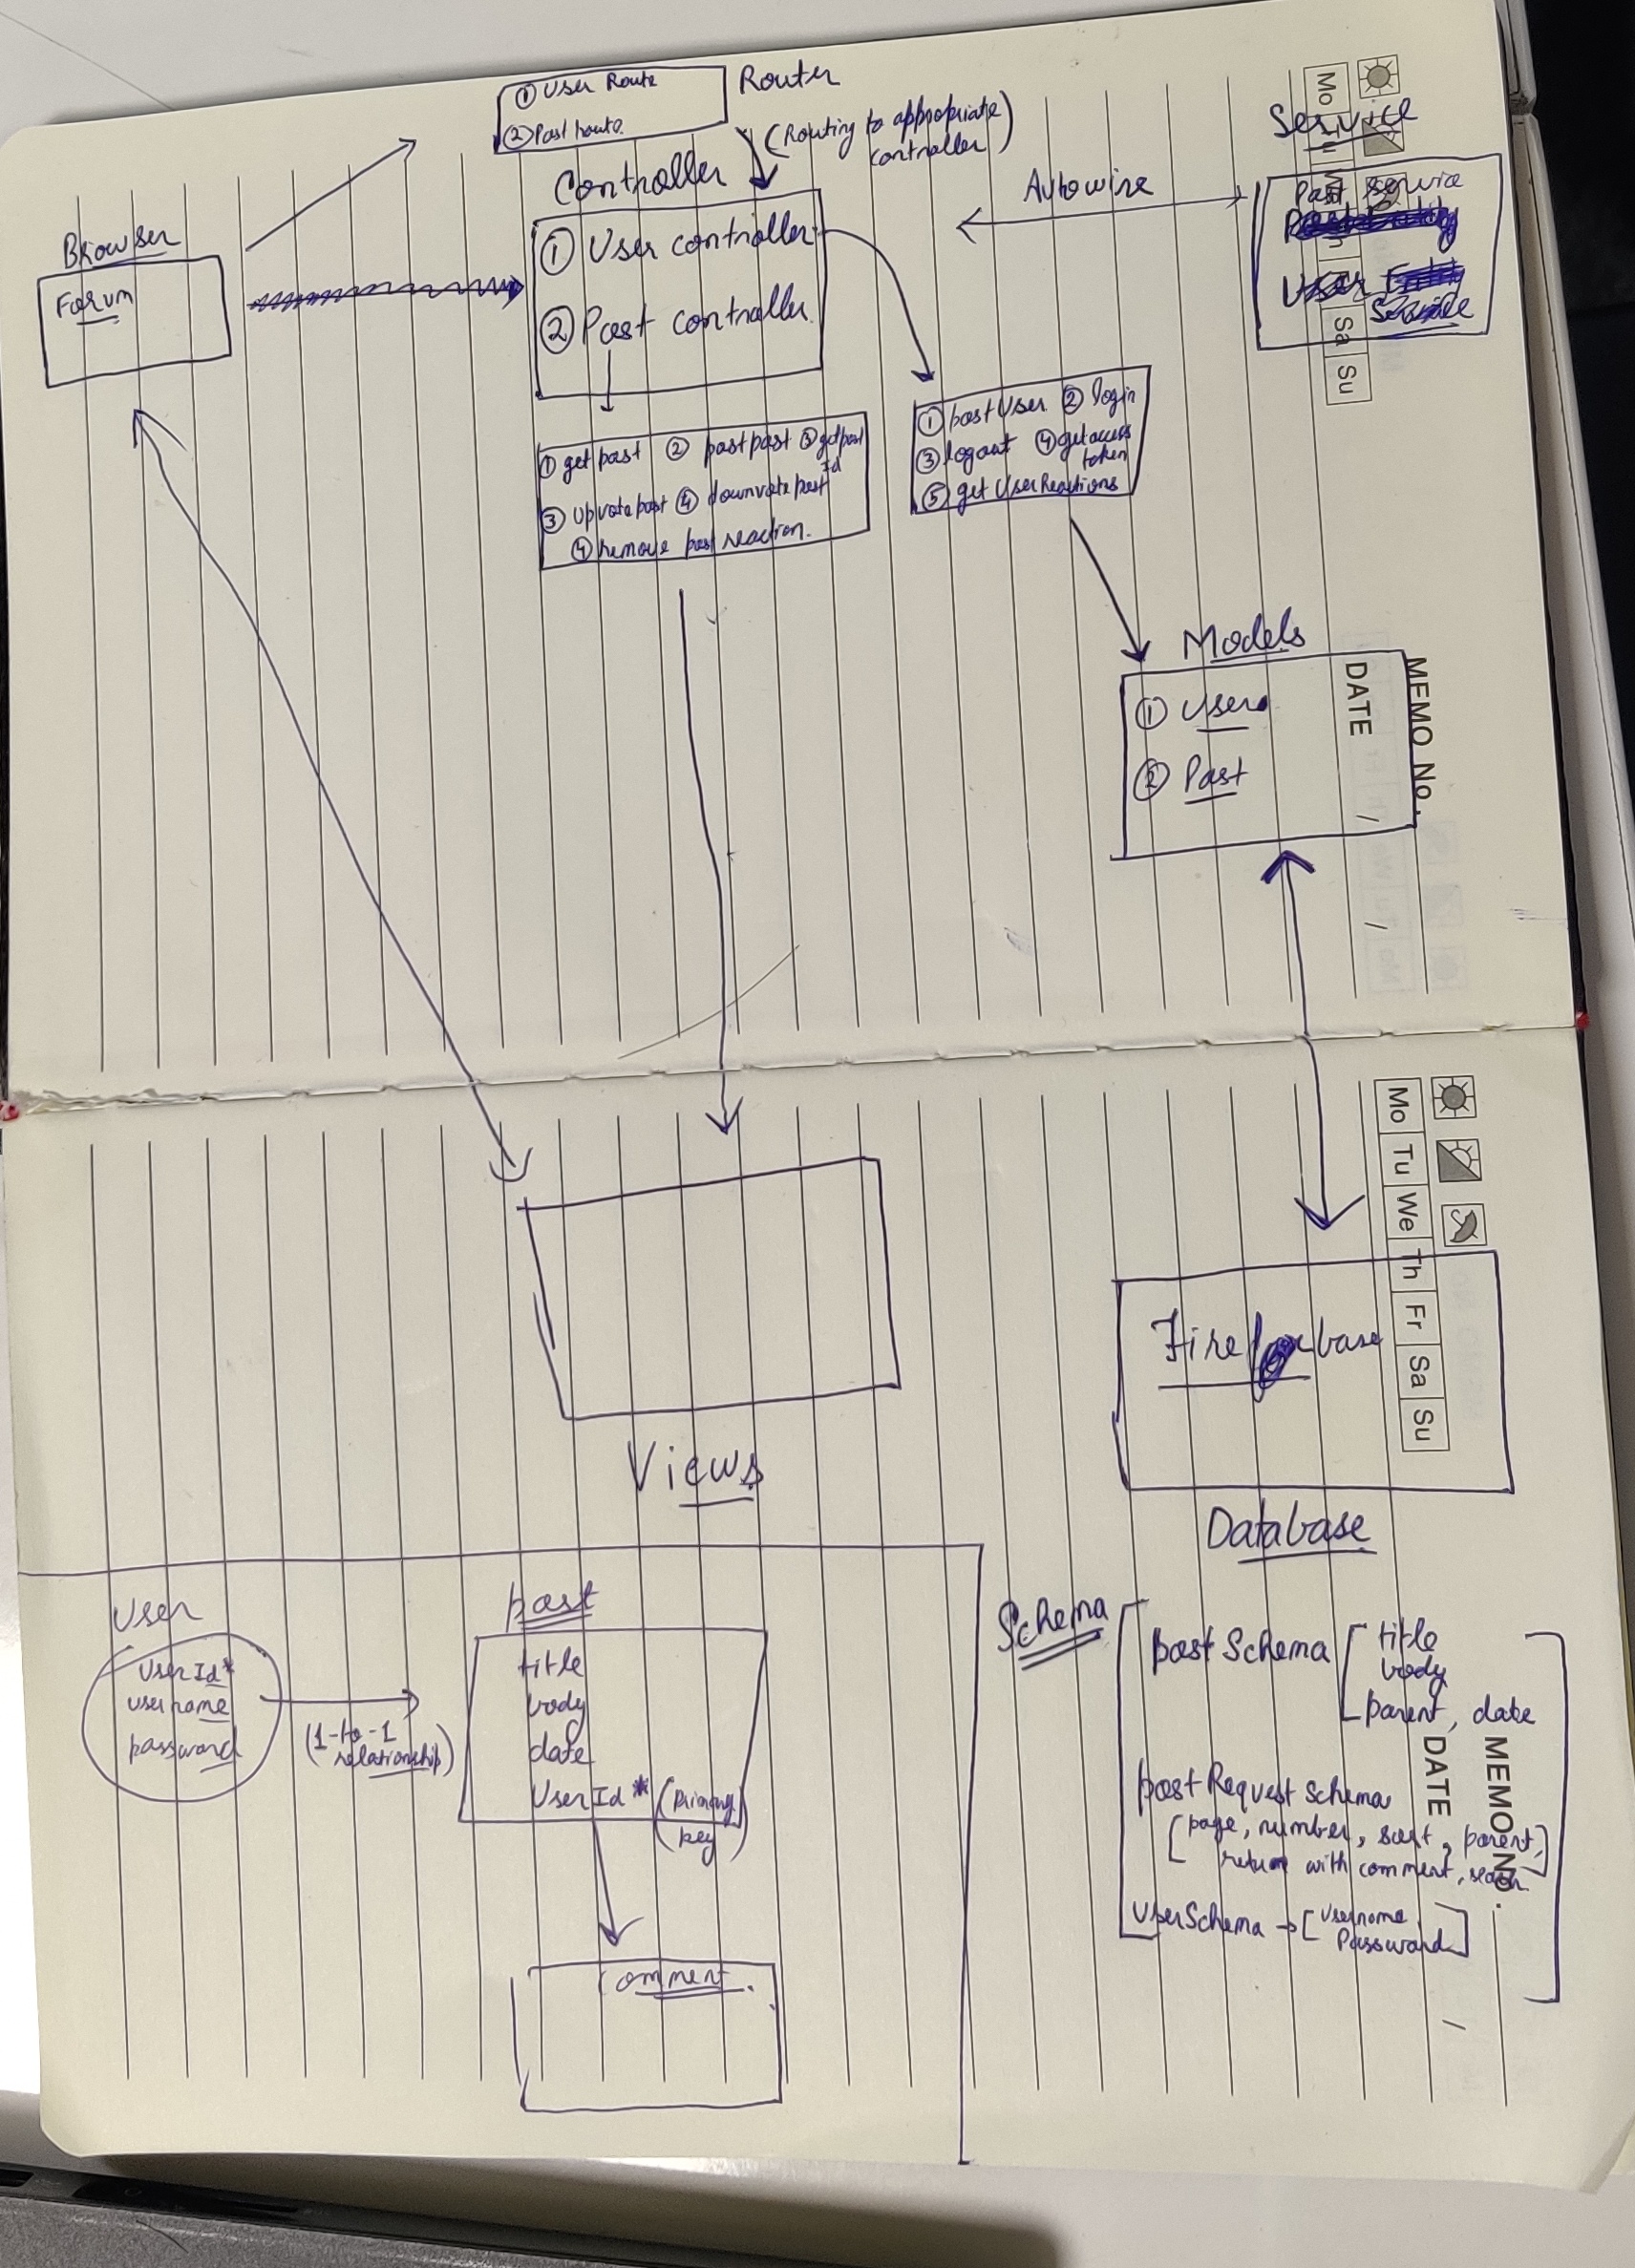 ① User Route
② Post route
Router
(Routing to appropriate
controller)
Service
Post Service
User
Service
Autowire
Controller
① User controller
② Post controller
Browser
Forum
① get post ② post post ③ get post
Id
③ upvote post ④ downvote post
④ remove post reaction.
① post User ② login
③ logout ④ get access
token
⑤ get User Reactions
Models
① User
② Post
MEMO No.
DATE / /
Mo Tu We Th Fr Sa Su
Mo Tu We Th Fr Sa Su
Fire base
Database
Views
User
User Id*
username
password
(1-to-1
relationship)
post
title
body
date
User Id * (Primary
key)
Comment
Schema
post Schema
title
body
parent, date
post Request Schema
[page, number, sort, parent,
return with comment, search]
User Schema → [Username
Password]
MEMO No.
DATE /